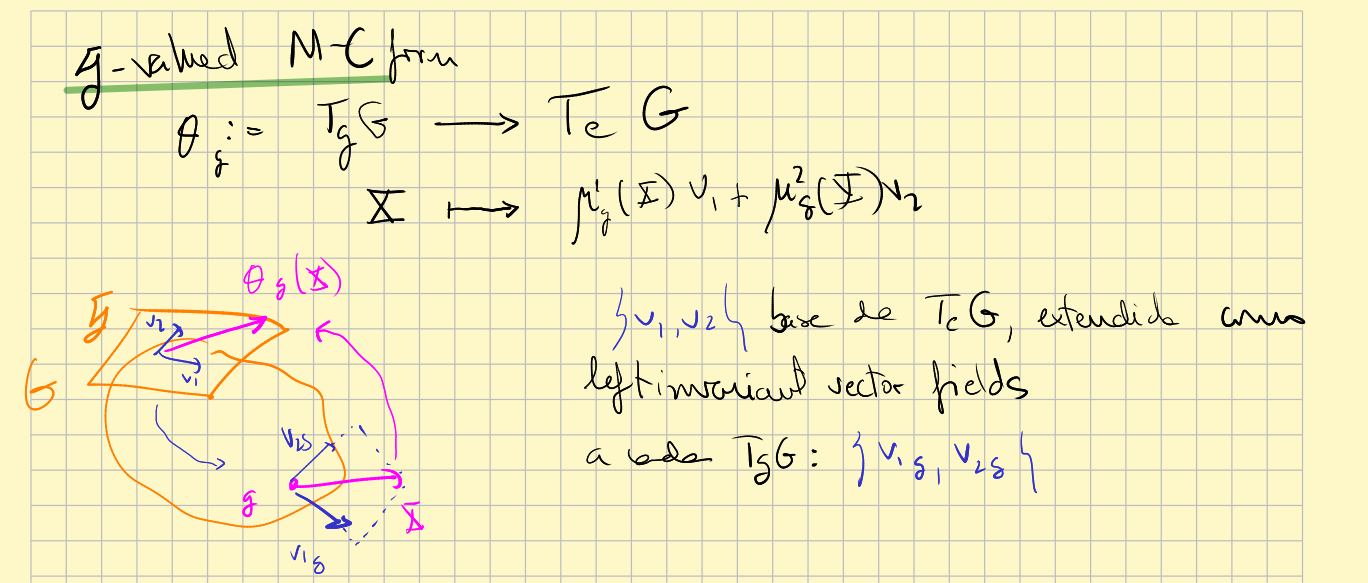 𝔤-valued M-C form
θ_g := T_gG ⟶ T_eG
X ⟼ μ¹_g(X) v₁ + μ²_g(X) v₂
θ_g(X)
𝔤
v₂
v₁
G
{v₁, v₂} base de T_eG, extendida como
left invariant vector fields
a cada T_gG: {v₁g, v₂g}
v₂g
g
X
v₁g